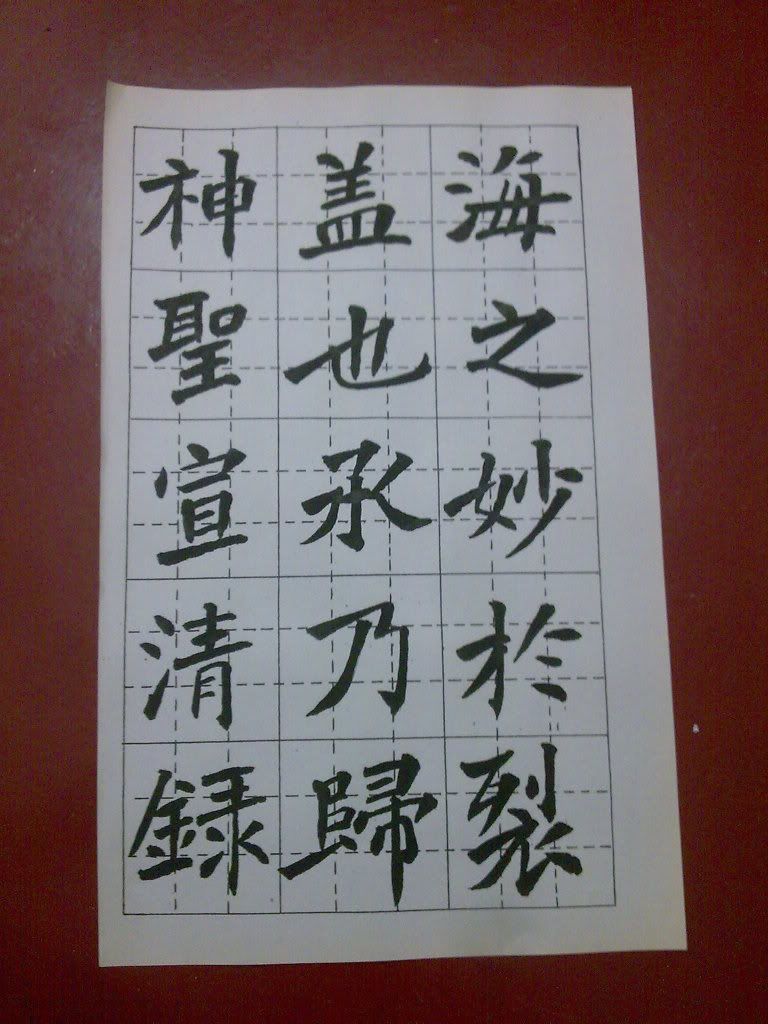 海之妙於裂
盖也承乃歸
神聖宣清録